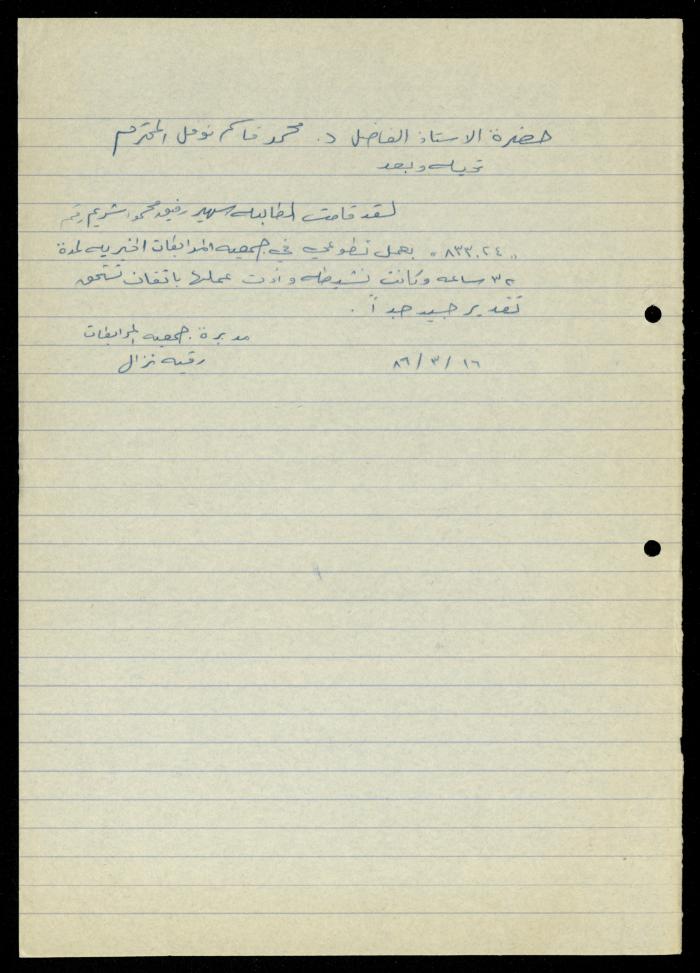 حضرة الاستاذ الفاضل د. محمد قاسم نوفل المحترم
تحيه وبعد
لقد قامت الطالبه سهير رفيق محمود شريم رقم
"٨٣٣٠٢٤" بعمل تطوعي في جمعيه المرابطات الخيريه لمدة
٣٢ ساعه وكانت نشيطه وأدت عملها باتقان تستحق
تقدير جيد جداً .
مديرة جمعيه المرابطات
رقيه نزال
١٦ / ٣ / ٨٦